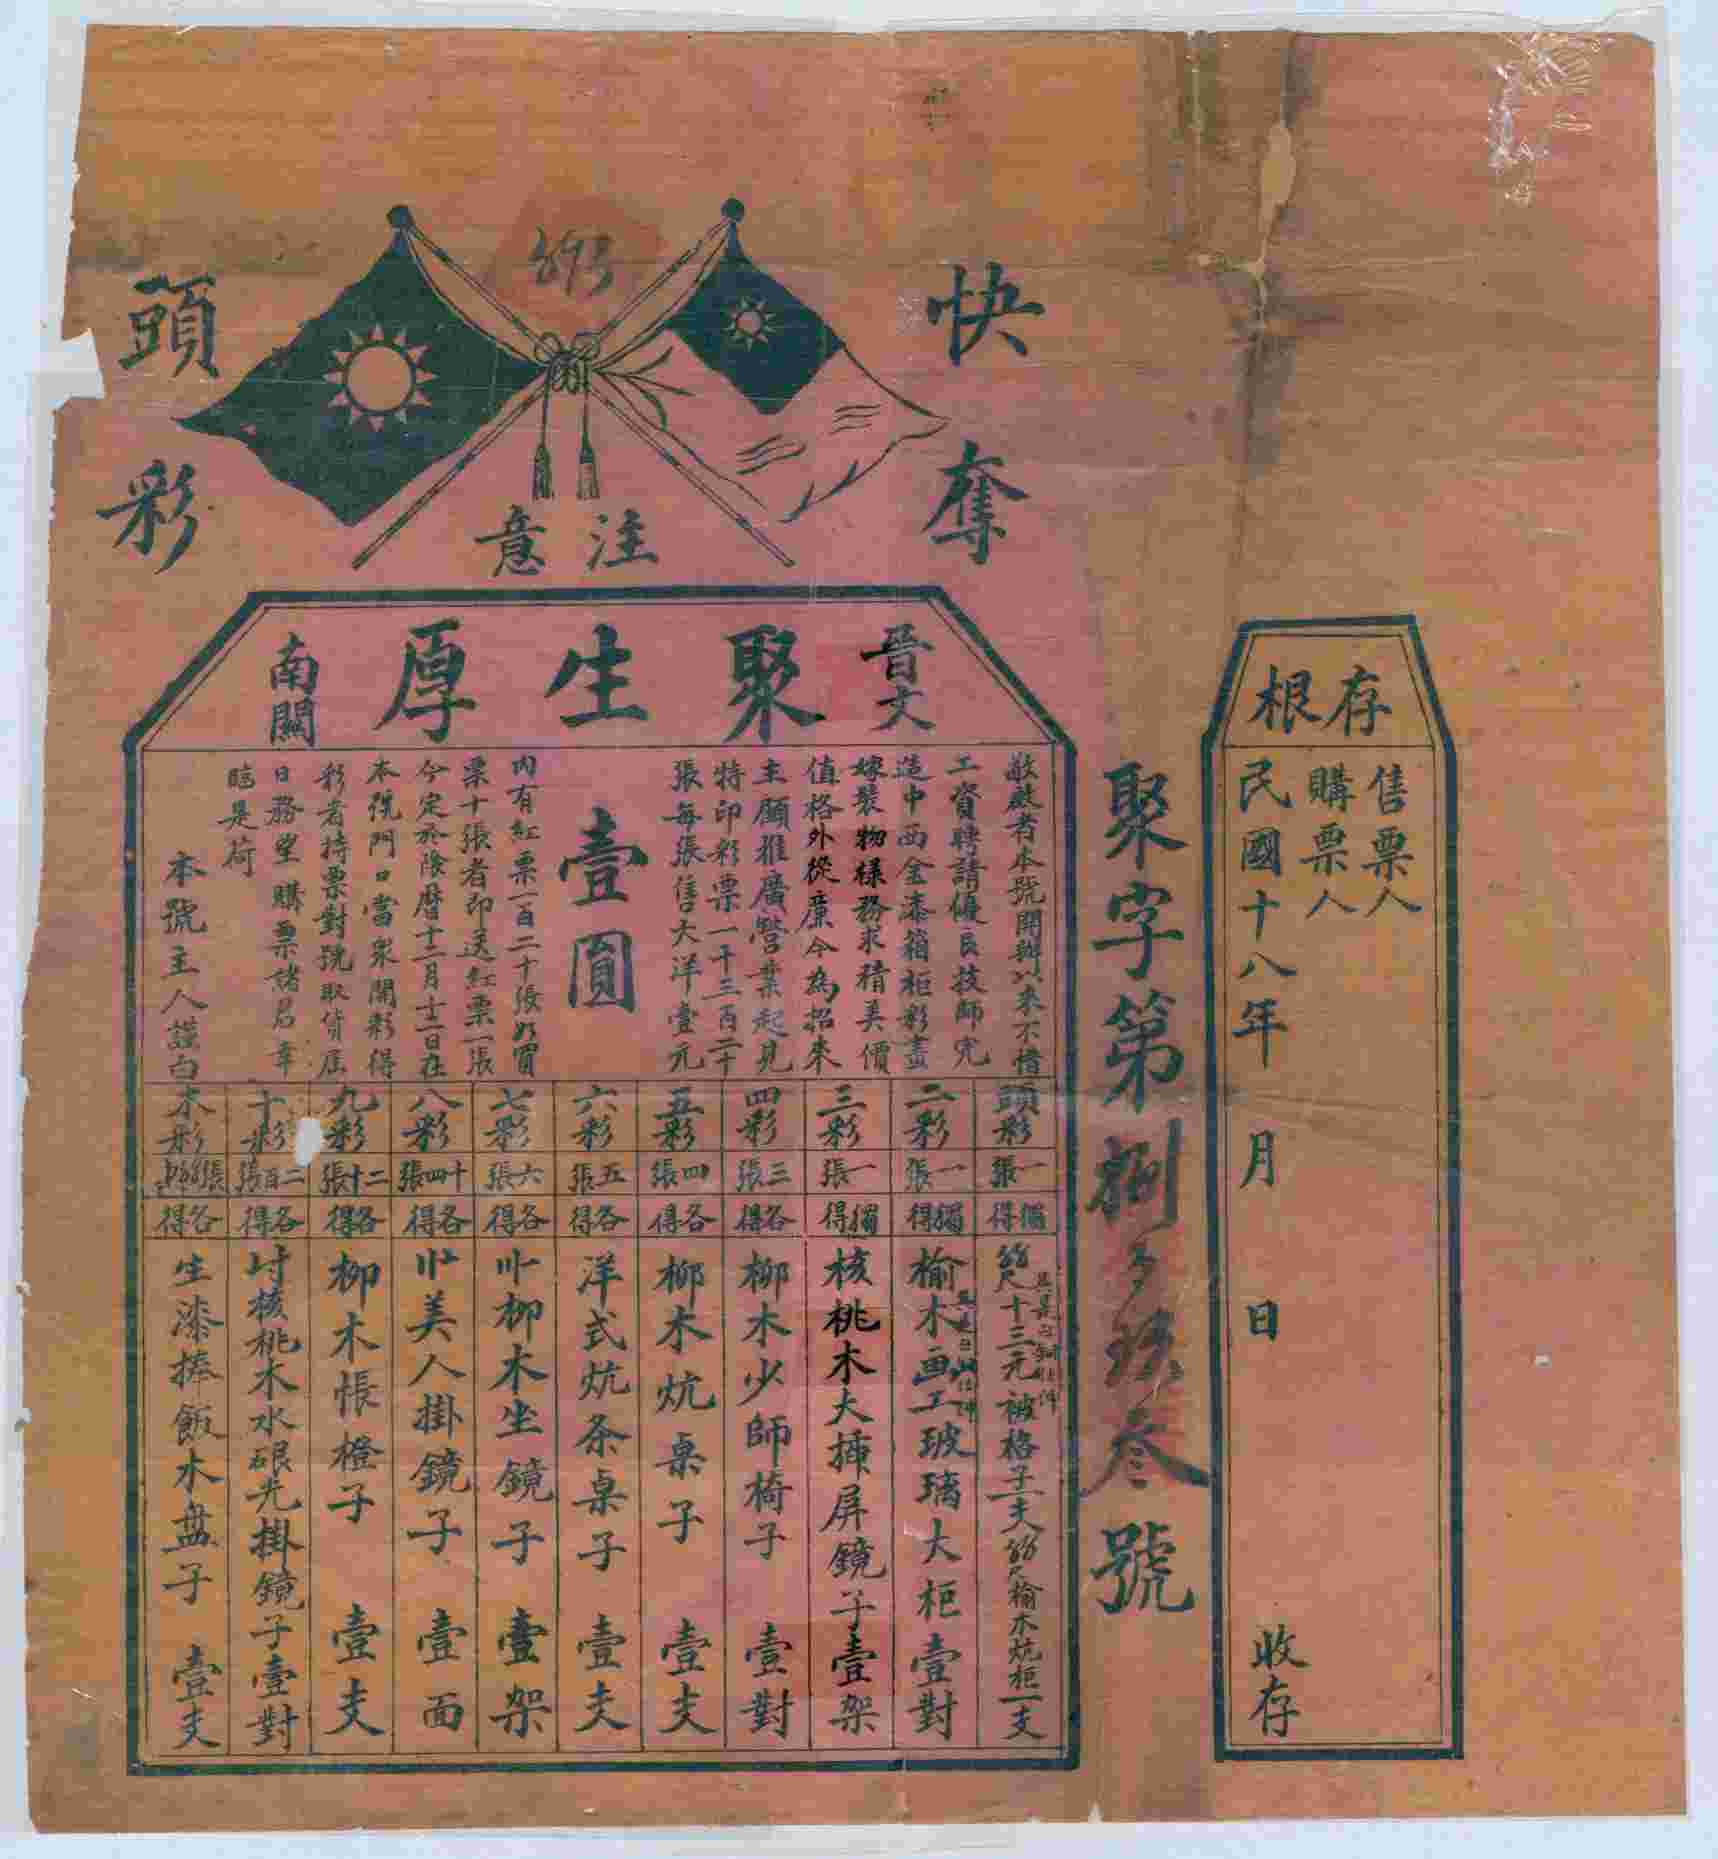 快奪
頭彩
893
注意
晉文
聚生厚
南關
敬啟者本號開辦以來不惜
工資聘請優良技師完
造中西金漆箱柜彩畫
嫁裝物様務求精美價
值格外從廉今為招來
主顧推廣營業起見
特印彩票一千三百二十
張每張售大洋壹元
壹圓
内有紅票一百二十張如買
票十張者即送紅票一張
今定於陰曆十二月十一日在
本號門口當衆開彩得
彩者持票對號取貨屆
日務望購票諸君幸
臨是荷
本號主人謹白
頭彩
一張
獨得
尺十三元被格子一支 尺榆木炕柜一支
二彩
一張
獨得
榆木画工玻璃大柜壹對
三彩
一張
獨得
核桃木大插屏鏡子壹架
四彩
三張
各得
柳木少師椅子 壹對
五彩
四張
各得
柳木炕桌子 壹支
六彩
五張
各得
洋式炕条桌子 壹支
七彩
六張
各得
柳木坐鏡子 壹架
八彩
十四張
各得
美人掛鏡子 壹面
九彩
二十張
各得
柳木帳橙子 壹支
十彩
二百張
各得
核桃木水銀光掛鏡子壹對
末彩
張
各得
生漆捧飯木盘子 壹支
聚字第捌百玖拾叁號
存根
售票人
購票人
民國十八年 月 日 收存